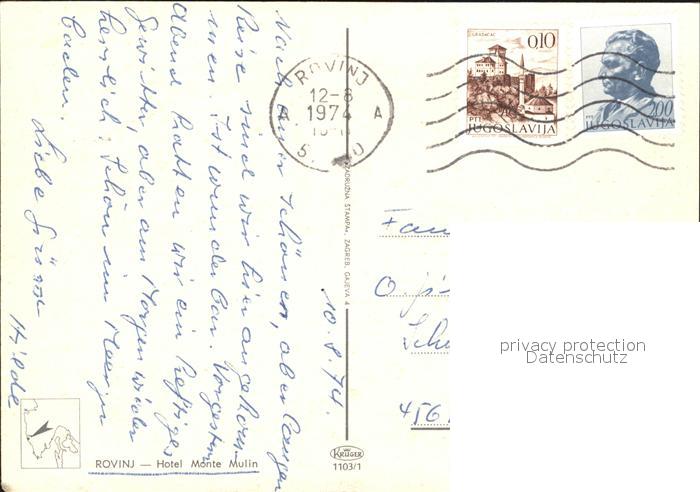 GRADAČAC
0,10
PTT
JUGOSLAVIJA
2,00
JUGOSLAVIJA
ROVINJ
12-8
1974
A A
10.8.74.
Nach einer schönen, aber langen
Reise sind wir hier angekom-
men. Ist wunderbar. Vorgestern
Abend hatten wir ein heftiges
Gewitter, aber am Morgen wieder
herrlich. Schön im Meer zu
baden.
Liebe Grüsse
Hilde
ZADRUŽNA ŠTAMPA, ZAGREB, GAJEVA 4
Fam
456
privacy protection
Datenschutz
KRÜGER
1103/1
ROVINJ — Hotel Monte Mulin